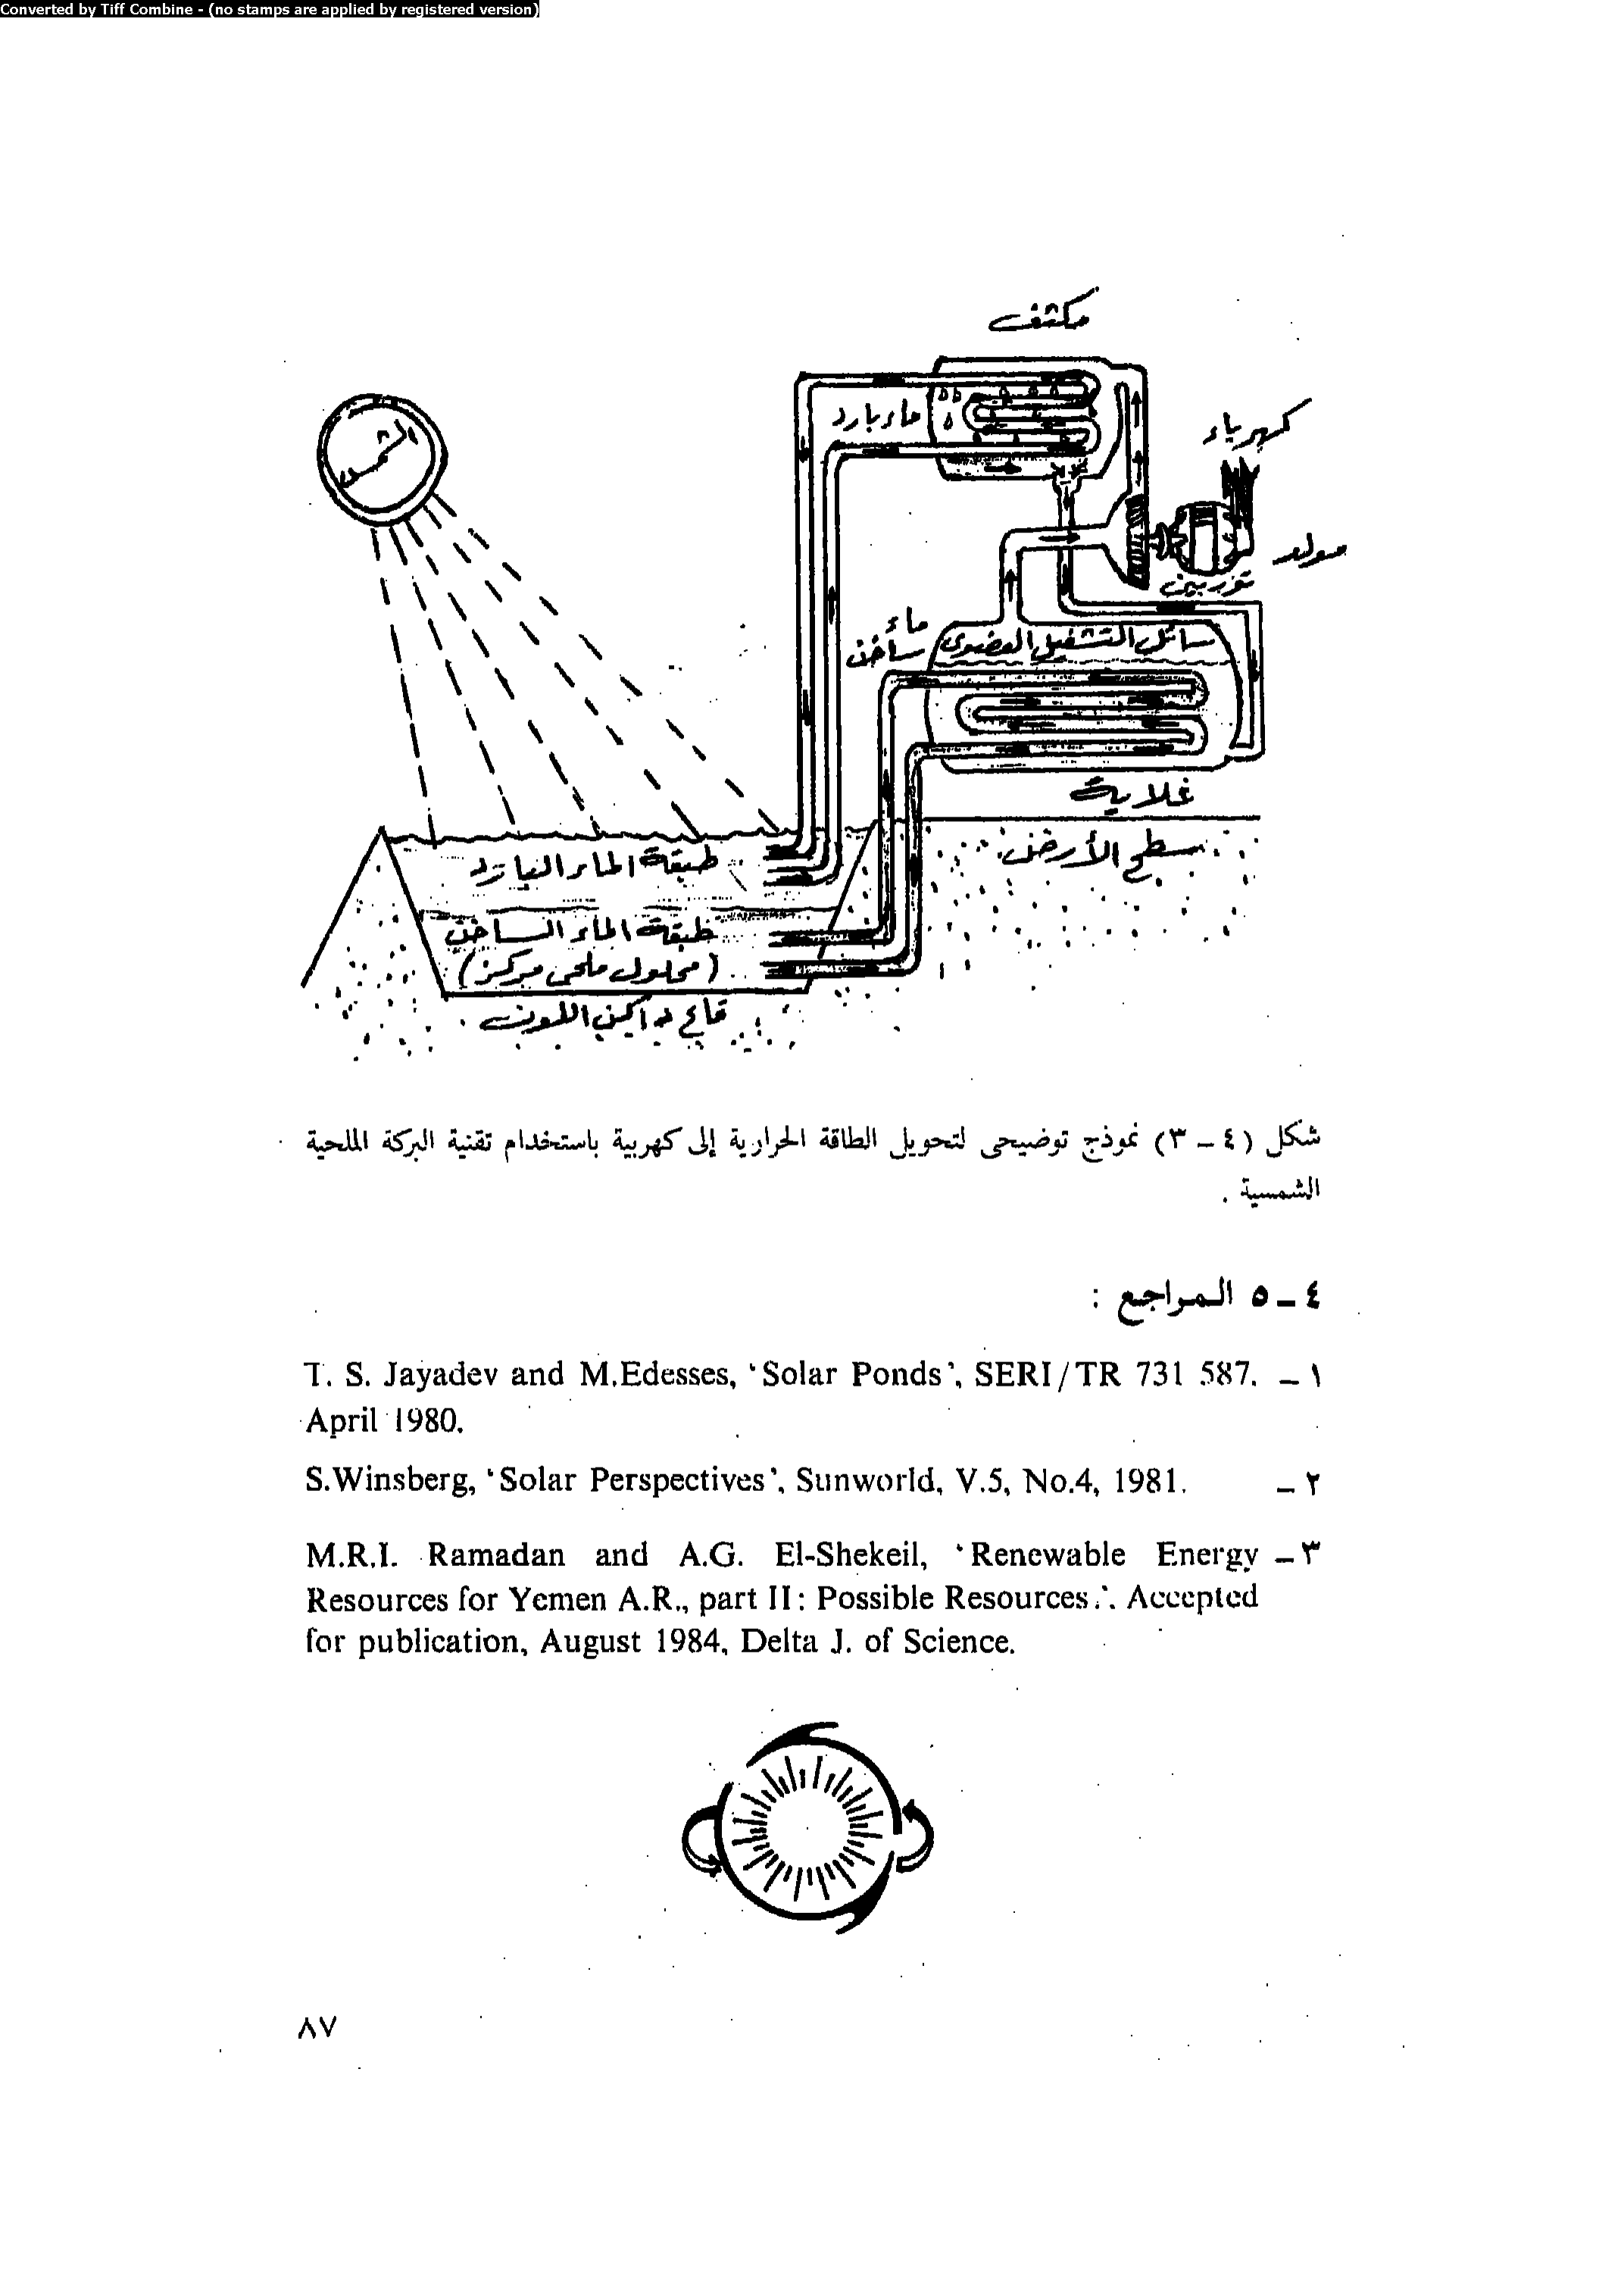 Converted by Tiff Combine - (no stamps are applied by registered version)
مكثف
الشمس
ماء بارد
كهرباء
مولد
توربين
ماء
ساخن
سائل التشغيل العضوى
غلاية
سطح الأرض
طبقة الماء البارد
طبقة الماء الساخن
(محلول ملحى مركز)
قاع داكن اللون
شكل (٤ – ٣) نموذج توضيحى لتحويل الطاقة الحرارية إلى كهربية باستخدام تقنية البركة الملحية
الشمسية .
٤ – ٥ المراجع :
T. S. Jayadev and M.Edesses, ‘Solar Ponds’, SERI/TR 731 587. – ١
April 1980.
S.Winsberg, ‘Solar Perspectives’, Sunworld, V.5, No.4, 1981. – ٢
M.R.I. Ramadan and A.G. El-Shekeil, ‘Renewable Energy – ٣
Resources for Yemen A.R., part II: Possible Resources.’. Accepted
for publication, August 1984, Delta J. of Science.
٨٧